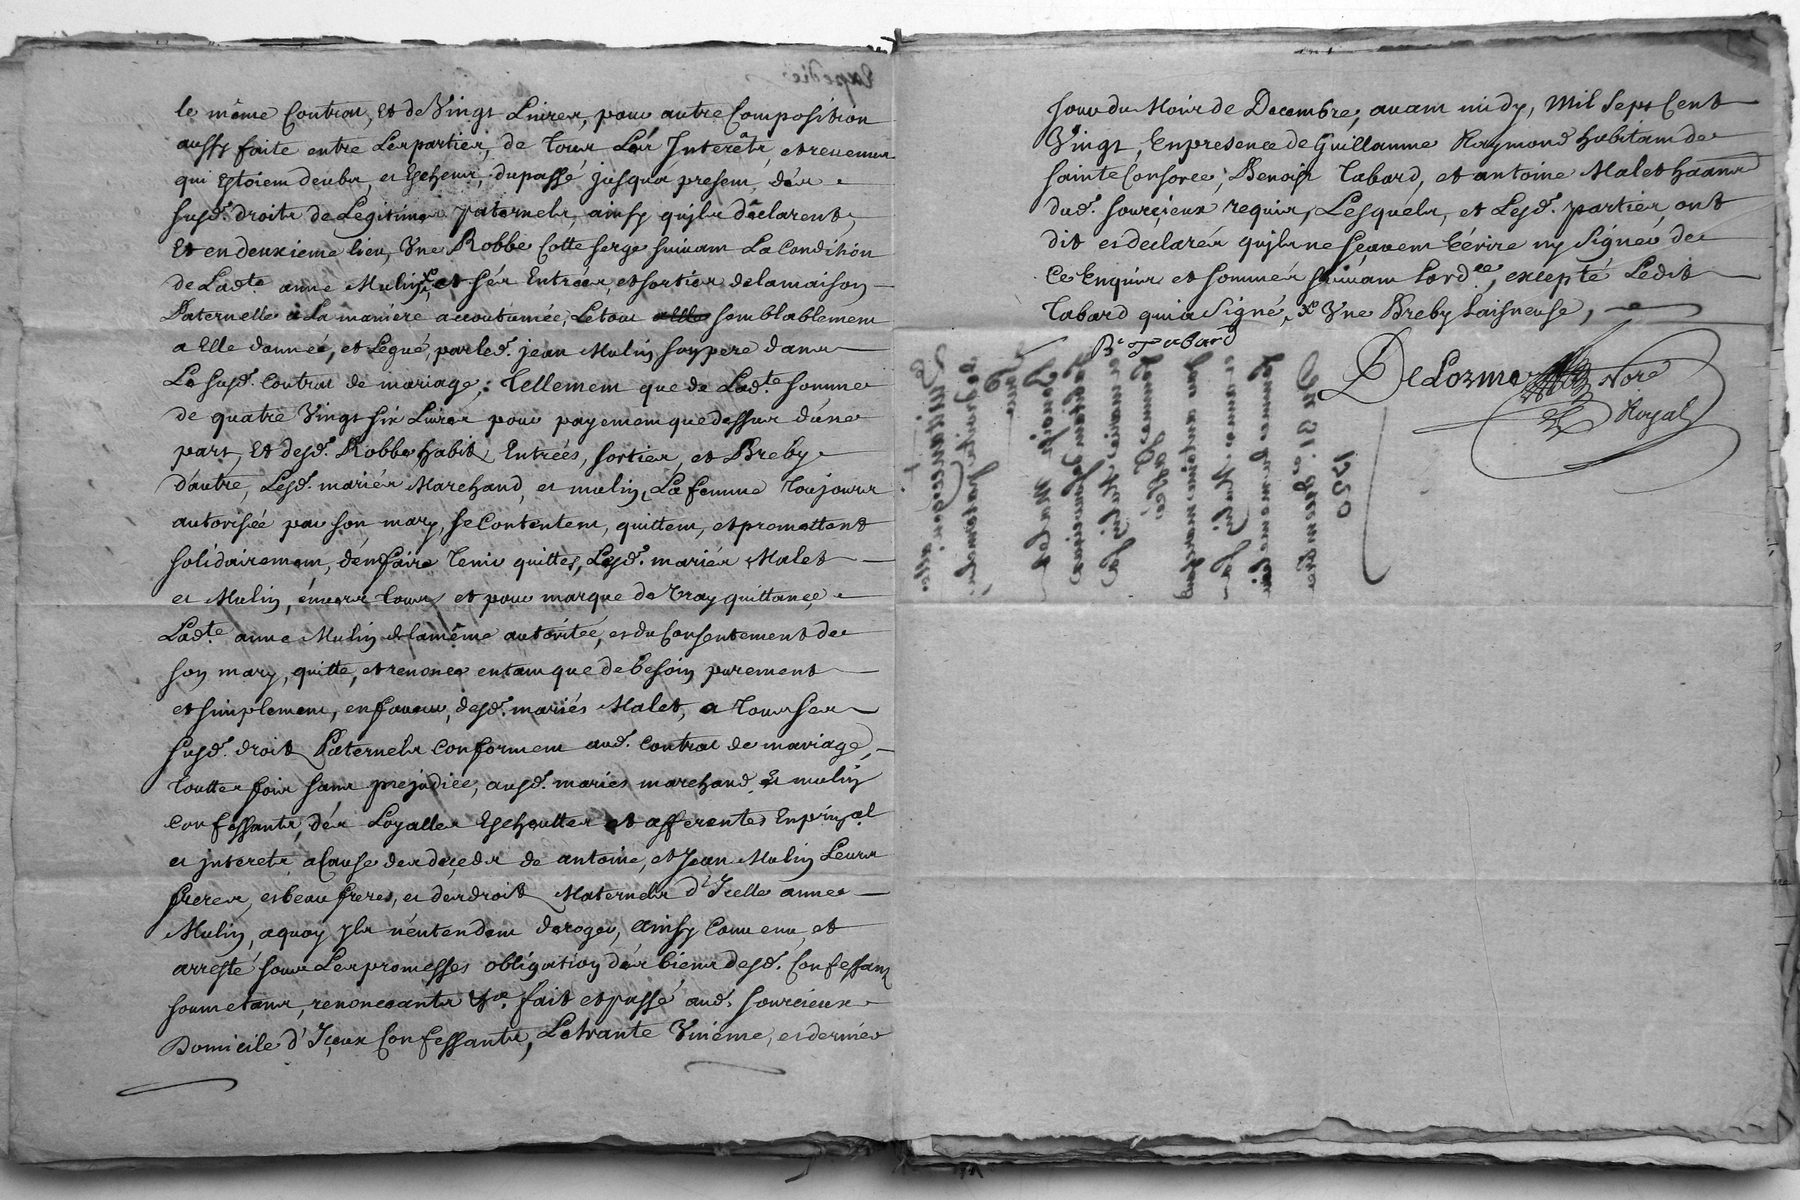 le même Contrat, et de Vingt Livres, pour autre Composition
aussy faite entre Les parties, de tous Les Interêts, et revenus
qui Estoient deubs, et Escheus, du passé jusqua present, des
susd. droits de Legitimes paternels, ainsy qujls dêclarent,
Et en deuxieme lieu, Vne Robbe Cotte serge suivant La Condition
de Ladte. anne Mulin, et sés Entrées, et sorties de la maison
Paternelle a La maniére accoutumée, Le tout semblablement
a Elle donneé, et Légué, par led. jean Mulin son pere dans
Le susd. Contrat de mariage; Tellement que de Ladte somme
de quatre Vingt six Livres pour payement que dessus d'une
part, Et desd. Robbe habit, Entreés, sorties, et Breby
d'autre, Lesd. mariés Marchand, et mulin, La femme Toujours
autorisée par son mary, se Contentent, quittent, et promettent
solidairement, d'en faire Tenir quittes, Lesd. mariés Malet
et Mulin, énvers tous, et pour marque de Vray quittance,
Ladte. anne Mulin de la même autorité, et du Consentement de
son mary, quitte, et renonce entant que de besoin purement
et simplement, en faveur, desd. mariés Malet, a tous ses
susd. droits Paternels Conforment aud. Contrat de mariage,
touttes fois sans prejudice, ausd. mariés marchand et mulin
Confessants, dés Loyalles Escheuttes et afferentes En prinpal
et jnterets, a Cause des deceds de antoine, et Jean Mulin Leurs
freres, et beau freres, et des droits Maternels d'Icelle anne
Mulin, a quoy jls n'entendent deroger, ainsy Convenu, et
arrêsté sous Les promesses obligation dés biens desd. Confessants
soumetans, renonceants &ce. fait et passé aud. sourcieux
Domicile d'Iceux Confessants, Le trante Vniéme, et dernier
Jour du Mois de Decembre, avant midy, Mil Sept Cent
Vingt, En presence de Guillaume Raymond habitant de
sainte Consorce, Benoist Tabard, et antoine Malet
dud. sourcieux requis, Lesquéls, et Lesd. parties, ont
dit et declarés qujls ne sçavent Ecrire ny Signer de
Ce Enquis et sommés suivant Lordce, excepté Ledit
Tabard qui a Signé, Vne Breby Laisneuse,
B. Tabard
DeLozme Nore
Royal
1720